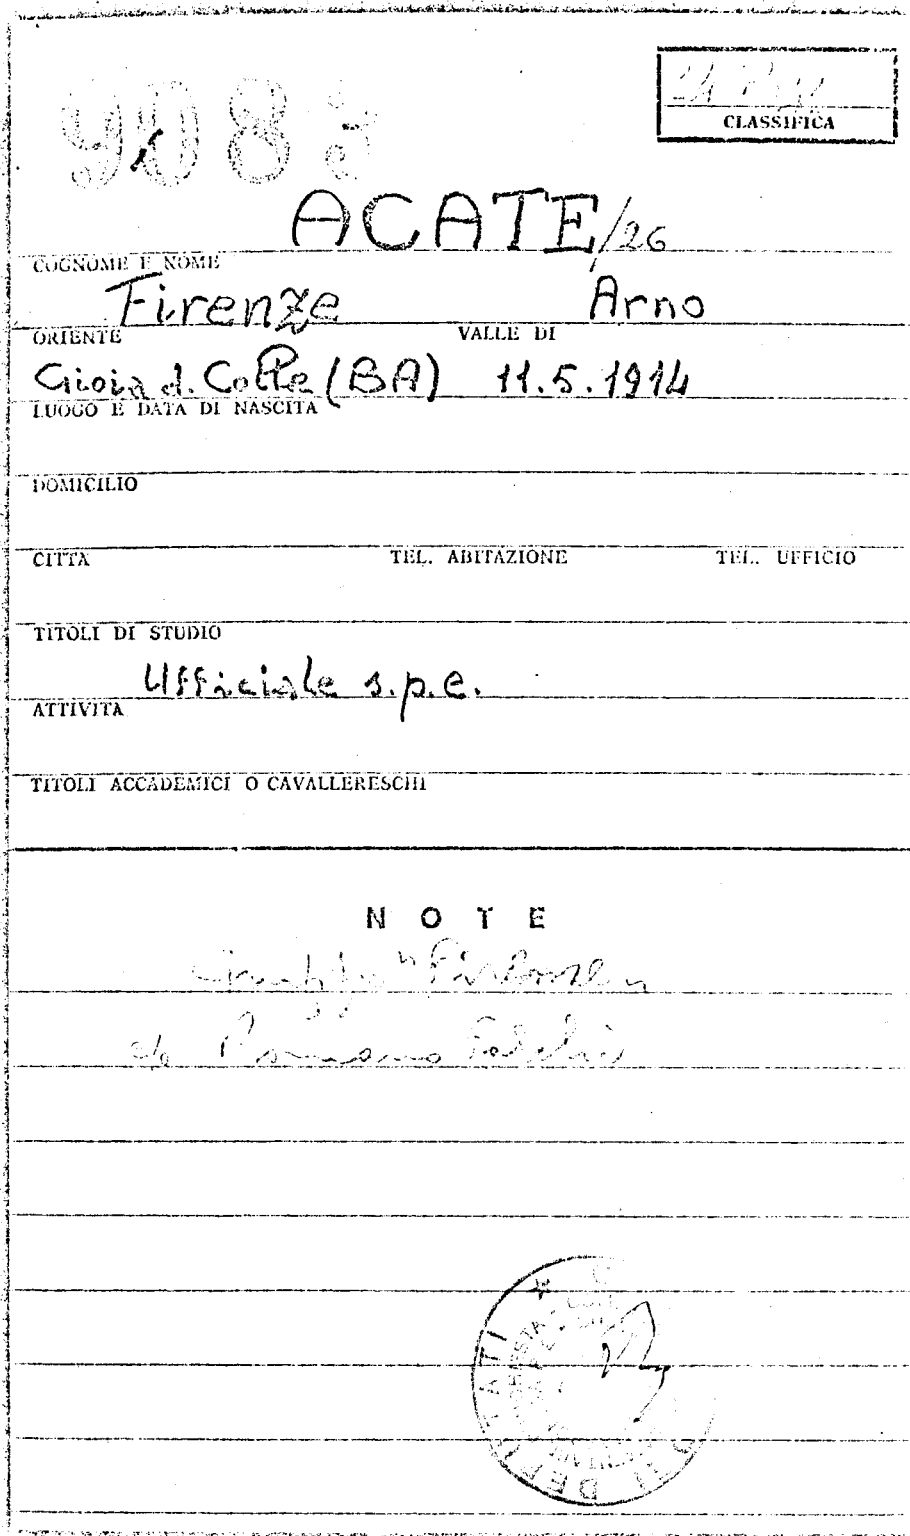 908
CLASSIFICA
ACATE/26
COGNOME E NOME
Firenze Arno
ORIENTE VALLE DI
Gioia d. Colle (BA) 11.5.1914
LUOGO E DATA DI NASCITA
DOMICILIO
CITTA TEL. ABITAZIONE TEL. UFFICIO
TITOLI DI STUDIO
Ufficiale s.p.e.
ATTIVITA
TITOLI ACCADEMICI O CAVALLERESCHI
NOTE
DEI DEPUTATI